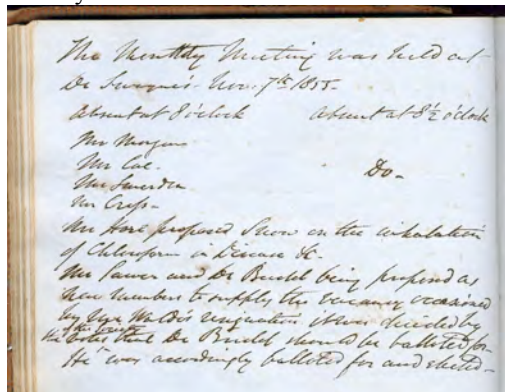 The Monthly Meeting was held at
Dr Nov. 7th 1855-
Absent at 8 o'clock Absent at 8½ o'clock
Mr Morgan
Mr Coe - Do-
Mr
Mr Cross -
Mr Hore proposed Snow on the inhalation
of Chloroform in Disease &c.
Mr and Dr Budd being proposed as
new members to supply the vacancy occasioned
by resignation it was decided by
the votes that Dr Budd should be balloted for-
He was accordingly balloted for and elected-